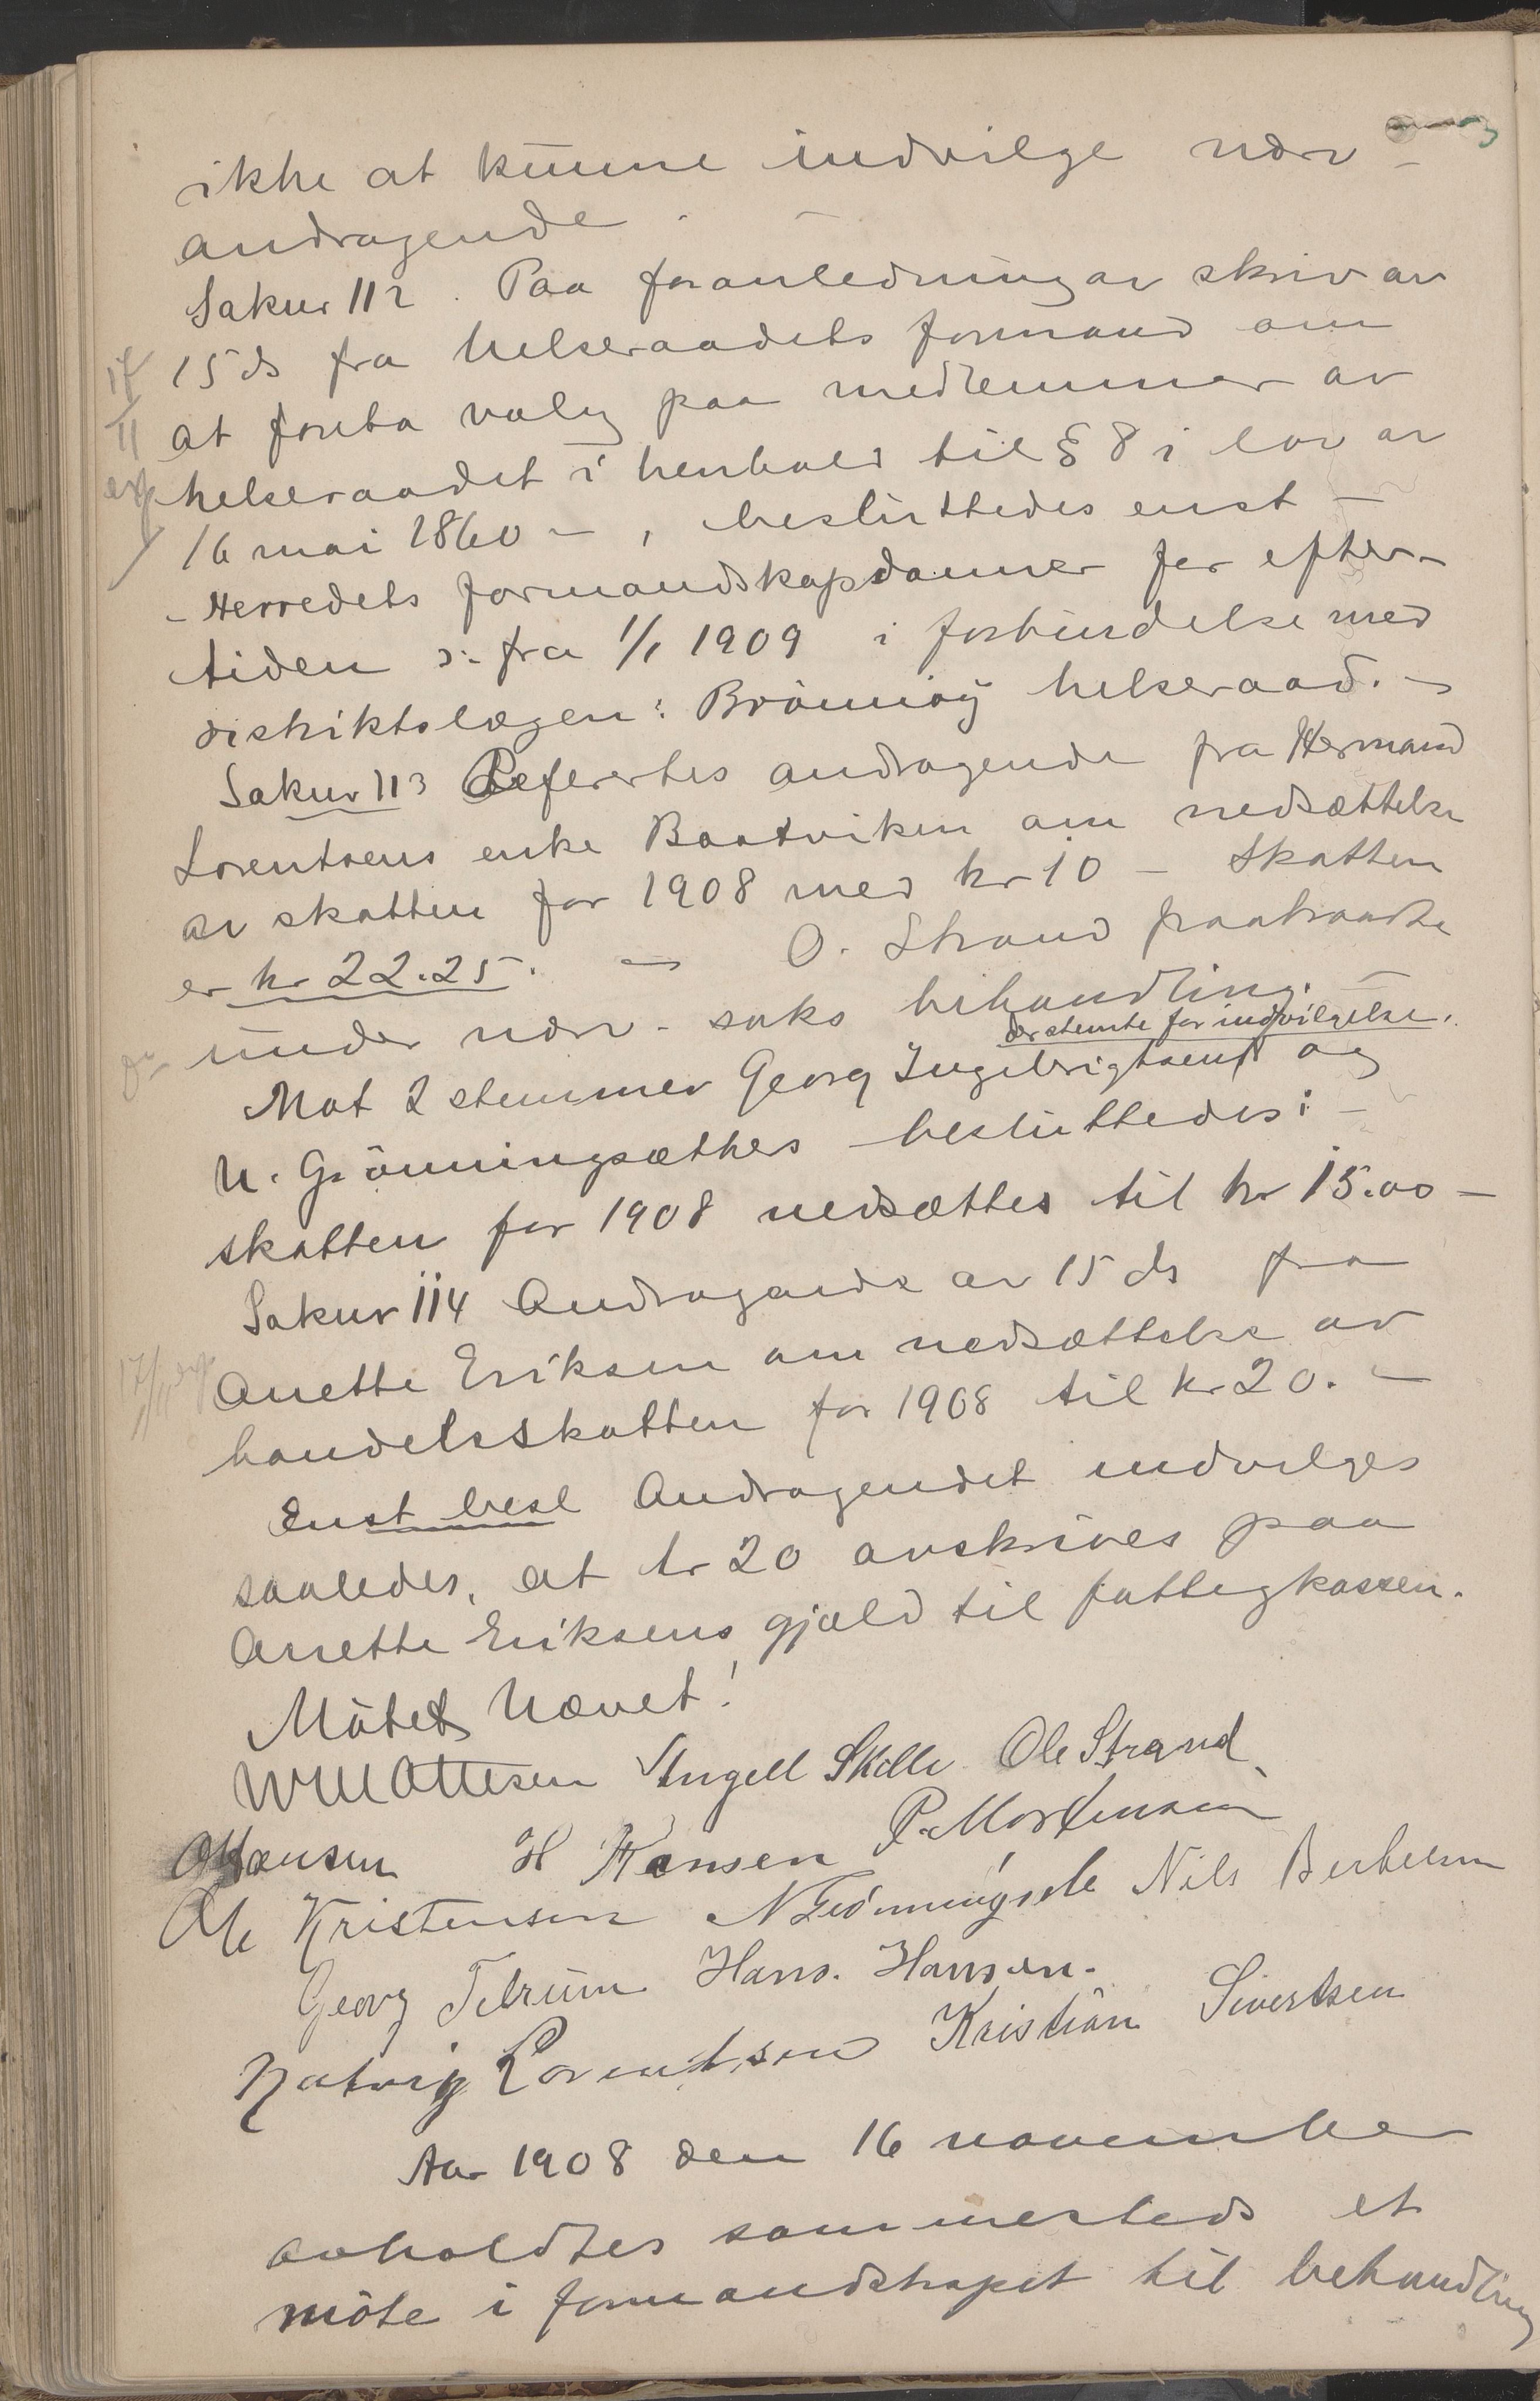 ikke at kunne indvilge nærv -
andragende.
Saknr 112. Paa foranledning av skriv av
15 ds fra helseraadets formand om
at foreta valg paa medlemmer av
helseraadet i henhold til § 8 i lov av
16 mai 1860 - , besluttedes enst -
- Herredets formandskap danner for efter-
tiden ɔ: fra 1/1 1909 i forbindelse med
distriktslægen: Brönnöy helseraad. -
Saknr 113 Refertes andragende fra Hermand
Lorentsens enke Baatviken om nedsættelse
av skatten for 1908 med kr 10 - Skatten
er kr 22.25. - O. Strand fratraadte
under nærv. saks behandling. -
der stemte for indvilgelse.
Mot 2 stemmer Georg Ingebrigtsens og
N. Grönningsæthers besluttedes: -
skatten for 1908 nedsættes til kr 15.00 -
Saknr 114 Andragende av 15 ds fra
Anette Eriksen om nedsættelse av
handelsskatten for 1908 til kr 20. -
Enst besl Andragendet indvilges
saaledes, at kr 20 avskrives paa
Anette Eriksens gjæld til fattigkassen.
Mötet hævet!
Ottesen Angell Skille Ole Strand
Hansen H Hansen P. Mortensen
Ole Kristensen N Grönningsæte Nils
Georg Tilrum Hans. Hansen.
Hartvig Lorentsen Kristian Sivertsen
Aar 1908 den 16 november
avholdtes sammesteds et
möte i formandskapet til behandling
17/11
exp
17/11 exp